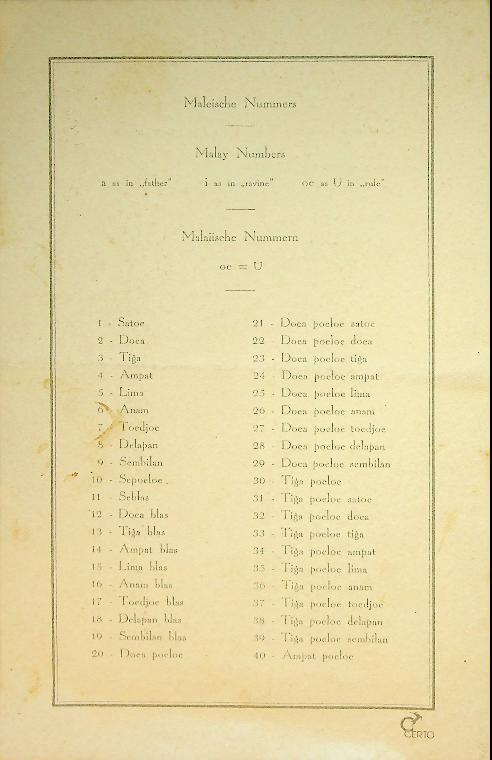 Maleische Nummers
Malay Numbers
a as in „father” i as in „ravine” oe as U in „rule”
Malaiische Nummern
oe = U
1 - Satoe
2 - Doea
3 - Tiga
4 - Ampat
5 - Lima
6 - Anam
7 - Toedjoe
8 - Delapan
9 - Sembilan
10 - Sepoeloe
11 - Seblas
12 - Doea blas
13 - Tiga blas
14 - Ampat blas
15 - Lima blas
16 - Anam blas
17 - Toedjoe blas
18 - Delapan blas
19 - Sembilan blas
20 - Doea poeloe
21 - Doea poeloe satoe
22 - Doea poeloe doea
23 - Doea poeloe tiga
24 - Doea poeloe ampat
25 - Doea poeloe lima
26 - Doea poeloe anam
27 - Doea poeloe toedjoe
28 - Doea poeloe delapan
29 - Doea poeloe sembilan
30 - Tiga poeloe
31 - Tiga poeloe satoe
32 - Tiga poeloe doea
33 - Tiga poeloe tiga
34 - Tiga poeloe ampat
35 - Tiga poeloe lima
36 - Tiga poeloe anam
37 - Tiga poeloe toedjoe
38 - Tiga poeloe delapan
39 - Tiga poeloe sembilan
40 - Ampat poeloe
CERTO